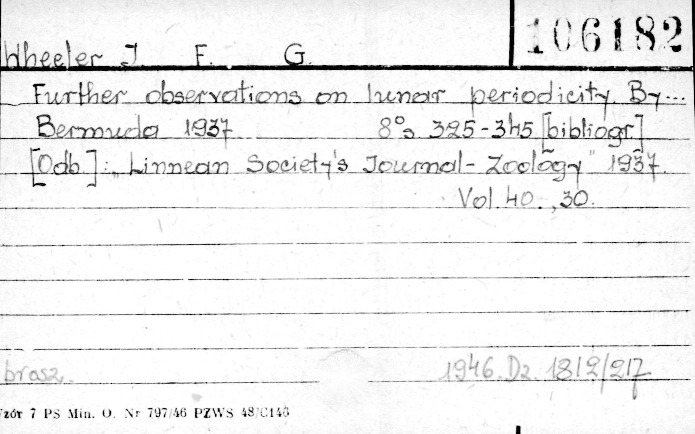 106182
Wheeler J. F. G.
Further observations on lunar periodicity. By...
Bermuda 1937 8°s 325-345 [bibliogr.]
[Odb.]: „Linnean Society's Journal-Zoology" 1937.
Vol. 40., 30.
brosz. 1946. Dz. 1812/217
Wzór 7 PS Min. O. Nr 797/46 PZWS 48/C146